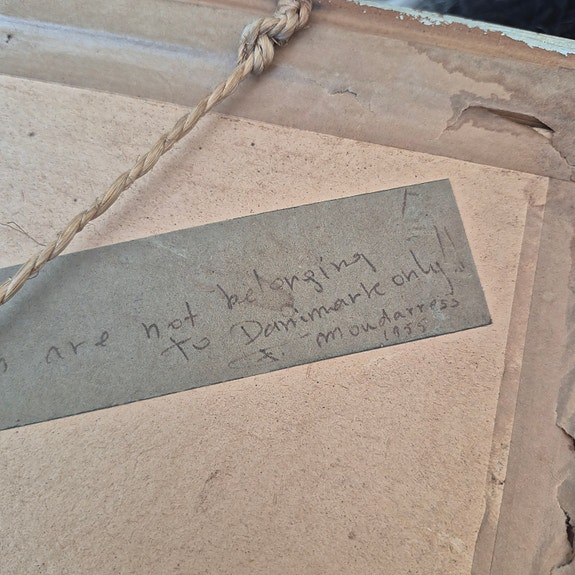 are not belonging
to Danimark only!!
F. Moudarress
1955